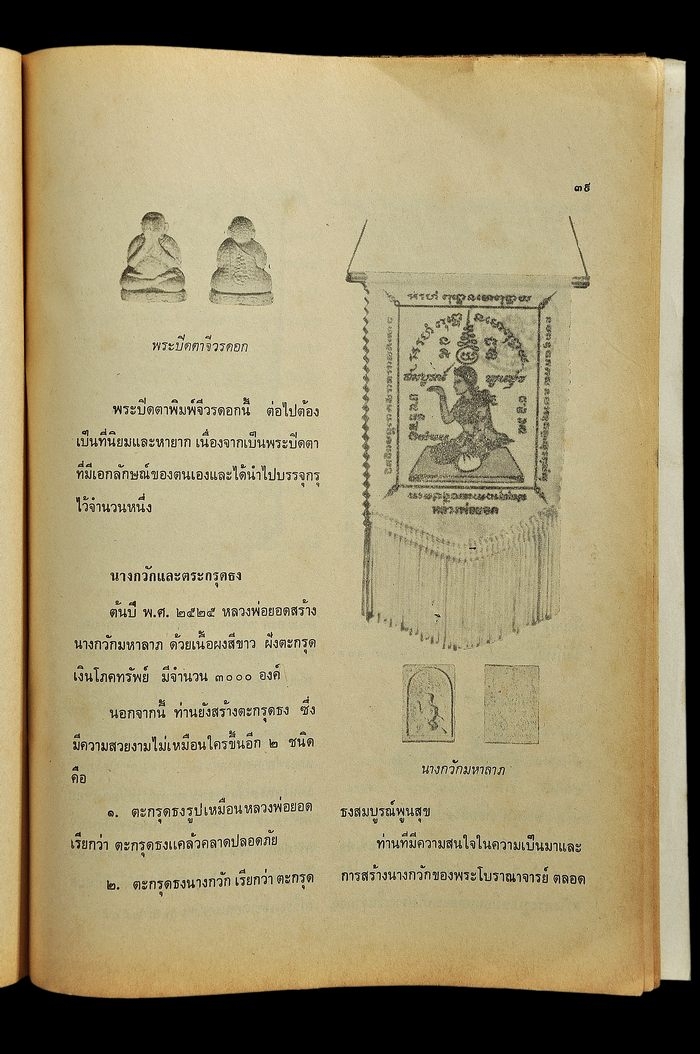 ๓๕
พระปิดตาจีวรดอก
พระปิดตาพิมพ์จีวรดอกนี้ ต่อไปต้อง
เป็นที่นิยมและหายาก เนื่องจากเป็นพระปิดตา
ที่มีเอกลักษณ์ของตนเองและได้นำไปบรรจุกรุ
ไว้จำนวนหนึ่ง
นางกวักและตระกรุดธง
ต้นปี พ.ศ. ๒๕๒๕ หลวงพ่อยอดสร้าง
นางกวักมหาลาภ ด้วยเนื้อผงสีขาว ฝังตะกรุด
เงินโภคทรัพย์ มีจำนวน ๓๐๐๐ องค์
นอกจากนี้ ท่านยังสร้างตะกรุดธง ซึ่ง
มีความสวยงามไม่เหมือนใครขึ้นอีก ๒ ชนิด
คือ
๑. ตะกรุดธงรูปเหมือนหลวงพ่อยอด
เรียกว่า ตะกรุดธงแคล้วคลาดปลอดภัย
๒. ตะกรุดธงนางกวัก เรียกว่า ตะกรุด
สมบูรณ์
หลวงพ่อยอด
นางกวักมหาลาภ
ธงสมบูรณ์พูนสุข
ท่านที่มีความสนใจในความเป็นมาและ
การสร้างนางกวักของพระโบราณาจารย์ ตลอด